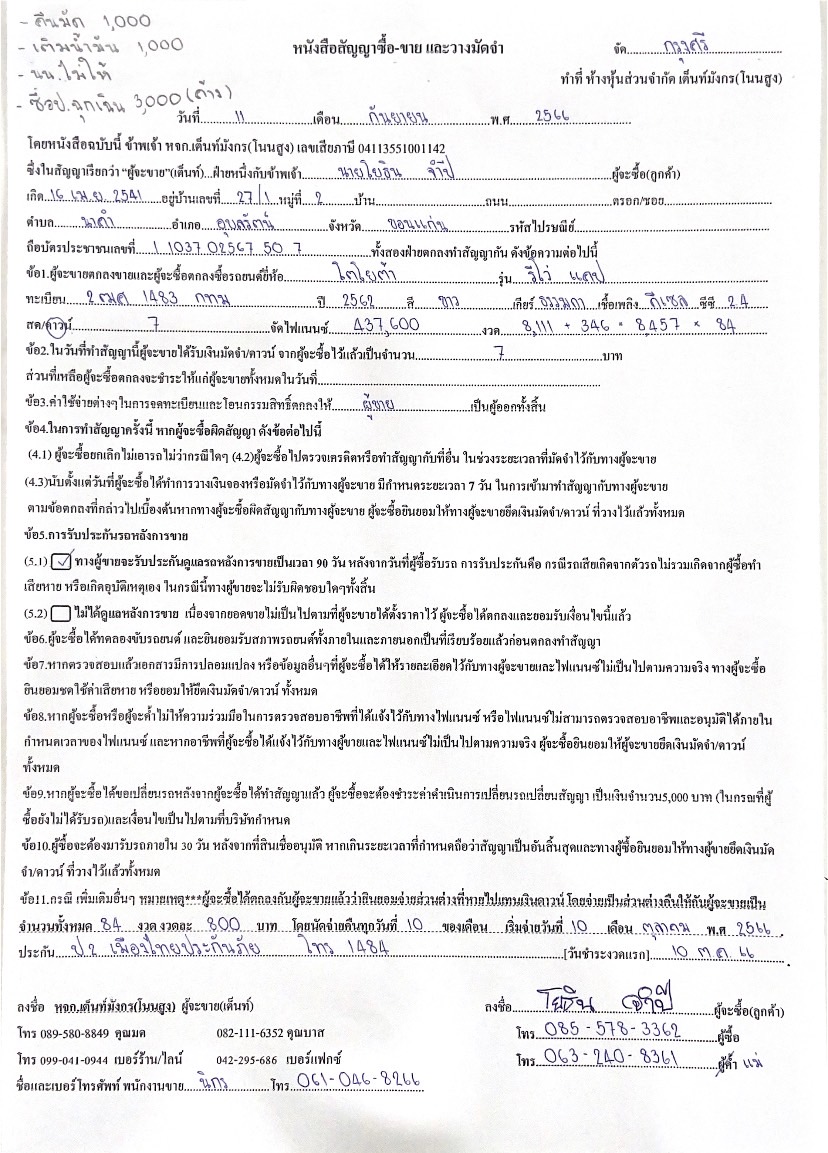 - คืนมัด 1,000
- เติมน้ำมัน 1,000
- นน.ไม่ให้
- ซื้อป.ฉุกเฉิน 3,000 (ค้าง)
หนังสือสัญญาซื้อ-ขาย และวางมัดจำ
จัด กรุงศรี
ทำที่ ห้างหุ้นส่วนจำกัด เต็นท์มังกร(โนนสูง)
วันที่ 11 เดือน กันยายน พ.ศ 2566
โดยหนังสือฉบับนี้ ข้าพเจ้า หจก.เต็นท์มังกร(โนนสูง) เลขเสียภาษี 04113551001142
ซึ่งในสัญญาเรียกว่า "ผู้จะขาย"(เต็นท์)...ฝ่ายหนึ่งกับข้าพเจ้า นายโยธิน จำปี ผู้จะซื้อ(ลูกค้า)
เกิด 16 เม.ย. 2541 อยู่บ้านเลขที่ 27/1 หมู่ที่ 2 บ้าน ถนน ตรอก/ซอย
ตำบล นาคำ อำเภอ อุบลรัตน์ จังหวัด ขอนแก่น รหัสไปรษณีย์
ถือบัตรประชาชนเลขที่ 1 1037 02567 50 7 ทั้งสองฝ่ายตกลงทำสัญญากัน ดังข้อความต่อไปนี้
ข้อ1.ผู้จะขายตกลงขายและผู้จะซื้อตกลงซื้อรถยนต์ยี่ห้อ โตโยต้า รุ่น รีโว่ แคป
ทะเบียน 2ฒศ 1483 กทม ปี 2562 สี ขาว เกียร์ ธรรมดา เชื้อเพลิง ดีเซล ซีซี 2.4
สด/ดาวน์ 7 จัดไฟแนนซ์ 437,600 งวด 8,111 + 346 = 8,457 × 84
ข้อ2.ในวันที่ทำสัญญานี้ผู้จะขายได้รับเงินมัดจำ/ดาวน์ จากผู้จะซื้อไว้แล้วเป็นจำนวน 7 บาท
ส่วนที่เหลือผู้จะซื้อตกลงจะชำระให้แก่ผู้จะขายทั้งหมดในวันที่
ข้อ3.ค่าใช้จ่ายต่างๆในการจดทะเบียนและโอนกรรมสิทธิ์ตกลงให้ ผู้ขาย เป็นผู้ออกทั้งสิ้น
ข้อ4.ในการทำสัญญาครั้งนี้ หากผู้จะซื้อผิดสัญญา ดังข้อต่อไปนี้
(4.1) ผู้จะซื้อยกเลิกไม่เอารถไม่ว่ากรณีใดๆ (4.2)ผู้จะซื้อไปตรวจเครดิตหรือทำสัญญากับที่อื่น ในช่วงระยะเวลาที่มัดจำไว้กับทางผู้จะขาย
(4.3)นับตั้งแต่วันที่ผู้จะซื้อได้ทำการวางเงินจองหรือมัดจำไว้กับทางผู้จะขาย มีกำหนดระยะเวลา 7 วัน ในการเข้ามาทำสัญญากับทางผู้จะขาย
ตามข้อตกลงที่กล่าวไปเบื้องต้นหากทางผู้จะซื้อผิดสัญญากับทางผู้จะขาย ผู้จะซื้อยินยอมให้ทางผู้จะขายยึดเงินมัดจำ/ดาวน์ ที่วางไว้แล้วทั้งหมด
ข้อ5.การรับประกันรถหลังการขาย
(5.1) ทางผู้ขายจะรับประกันดูแลรถหลังการขายเป็นเวลา 90 วัน หลังจากวันที่ผู้ซื้อรับรถ การรับประกันคือ กรณีรถเสียเกิดจากตัวรถไม่รวมเกิดจากผู้ซื้อทำ
เสียหาย หรือเกิดอุบัติเหตุเอง ในกรณีนี้ทางผู้ขายจะไม่รับผิดชอบใดๆทั้งสิ้น
(5.2) ไม่ได้ดูแลหลังการขาย เนื่องจากยอดขายไม่เป็นไปตามที่ผู้จะขายได้ตั้งราคาไว้ ผู้จะซื้อได้ตกลงและยอมรับเงื่อนไขนี้แล้ว
ข้อ6.ผู้จะซื้อได้ทดลองขับรถยนต์ และยินยอมรับสภาพรถยนต์ทั้งภายในและภายนอกเป็นที่เรียบร้อยแล้วก่อนตกลงทำสัญญา
ข้อ7.หากตรวจสอบแล้วเอกสารมีการปลอมแปลง หรือข้อมูลอื่นๆที่ผู้จะซื้อได้ให้รายละเอียดไว้กับทางผู้จะขายและไฟแนนซ์ไม่เป็นไปตามความจริง ทางผู้จะซื้อ
ยินยอมชดใช้ค่าเสียหาย หรือยอมให้ยึดเงินมัดจำ/ดาวน์ ทั้งหมด
ข้อ8.หากผู้จะซื้อหรือผู้จะค้ำไม่ให้ความร่วมมือในการตรวจสอบอาชีพที่ได้แจ้งไว้กับทางไฟแนนซ์ หรือไฟแนนซ์ไม่สามารถตรวจสอบอาชีพและอนุมัติได้ภายใน
กำหนดเวลาของไฟแนนซ์ และหากอาชีพที่ผู้จะซื้อได้แจ้งไว้กับทางผู้ขายและไฟแนนซ์ไม่เป็นไปตามความจริง ผู้จะซื้อยินยอมให้ผู้จะขายยึดเงินมัดจำ/ดาวน์
ทั้งหมด
ข้อ9.หากผู้จะซื้อได้ขอเปลี่ยนรถหลังจากผู้จะซื้อได้ทำสัญญาแล้ว ผู้จะซื้อจะต้องชำระค่าดำเนินการเปลี่ยนรถเปลี่ยนสัญญา เป็นเงินจำนวน5,000 บาท (ในกรณีที่ผู้
ซื้อยังไม่ได้รับรถ)และเงื่อนไขเป็นไปตามที่บริษัทกำหนด
ข้อ10.ผู้ซื้อจะต้องมารับรถภายใน 30 วัน หลังจากที่สินเชื่ออนุมัติ หากเกินระยะเวลาที่กำหนดถือว่าสัญญาเป็นอันสิ้นสุดและทางผู้ซื้อยินยอมให้ทางผู้ขายยึดเงินมัด
จำ/ดาวน์ ที่วางไว้แล้วทั้งหมด
ข้อ11.กรณี เพิ่มเติมอื่นๆ หมายเหตุ***ผู้จะซื้อได้ตกลงกับผู้จะขายแล้วว่ายินยอมจ่ายส่วนต่างที่หายไปแทนเงินดาวน์ โดยจ่ายเป็นส่วนต่างคืนให้กับผู้จะขายเป็น
จำนวนทั้งหมด 84 งวด งวดละ 800 บาท โดยนัดจ่ายคืนทุกวันที่ 10 ของเดือน เริ่มจ่ายวันที่ 10 เดือน ตุลาคม พ.ศ 2566
ประกัน ป.2 เมืองไทยประกันภัย โทร 1484 [วันชำระงวดแรก] 10 ต.ค. 66
ลงชื่อ หจก.เต็นท์มังกร(โนนสูง) ผู้จะขาย(เต็นท์)
ลงชื่อ โยธิน จำปี ผู้จะซื้อ(ลูกค้า)
โทร 089-580-8849 คุณมด 082-111-6352 คุณบาส
โทร 085-578-3362 ผู้ซื้อ
โทร 099-041-0944 เบอร์ร้าน/ไลน์ 042-295-686 เบอร์แฟกซ์
โทร 063-240-8361 ผู้ค้ำ แม่
ชื่อและเบอร์โทรศัพท์ พนักงานขาย นิกร โทร 061-046-8266